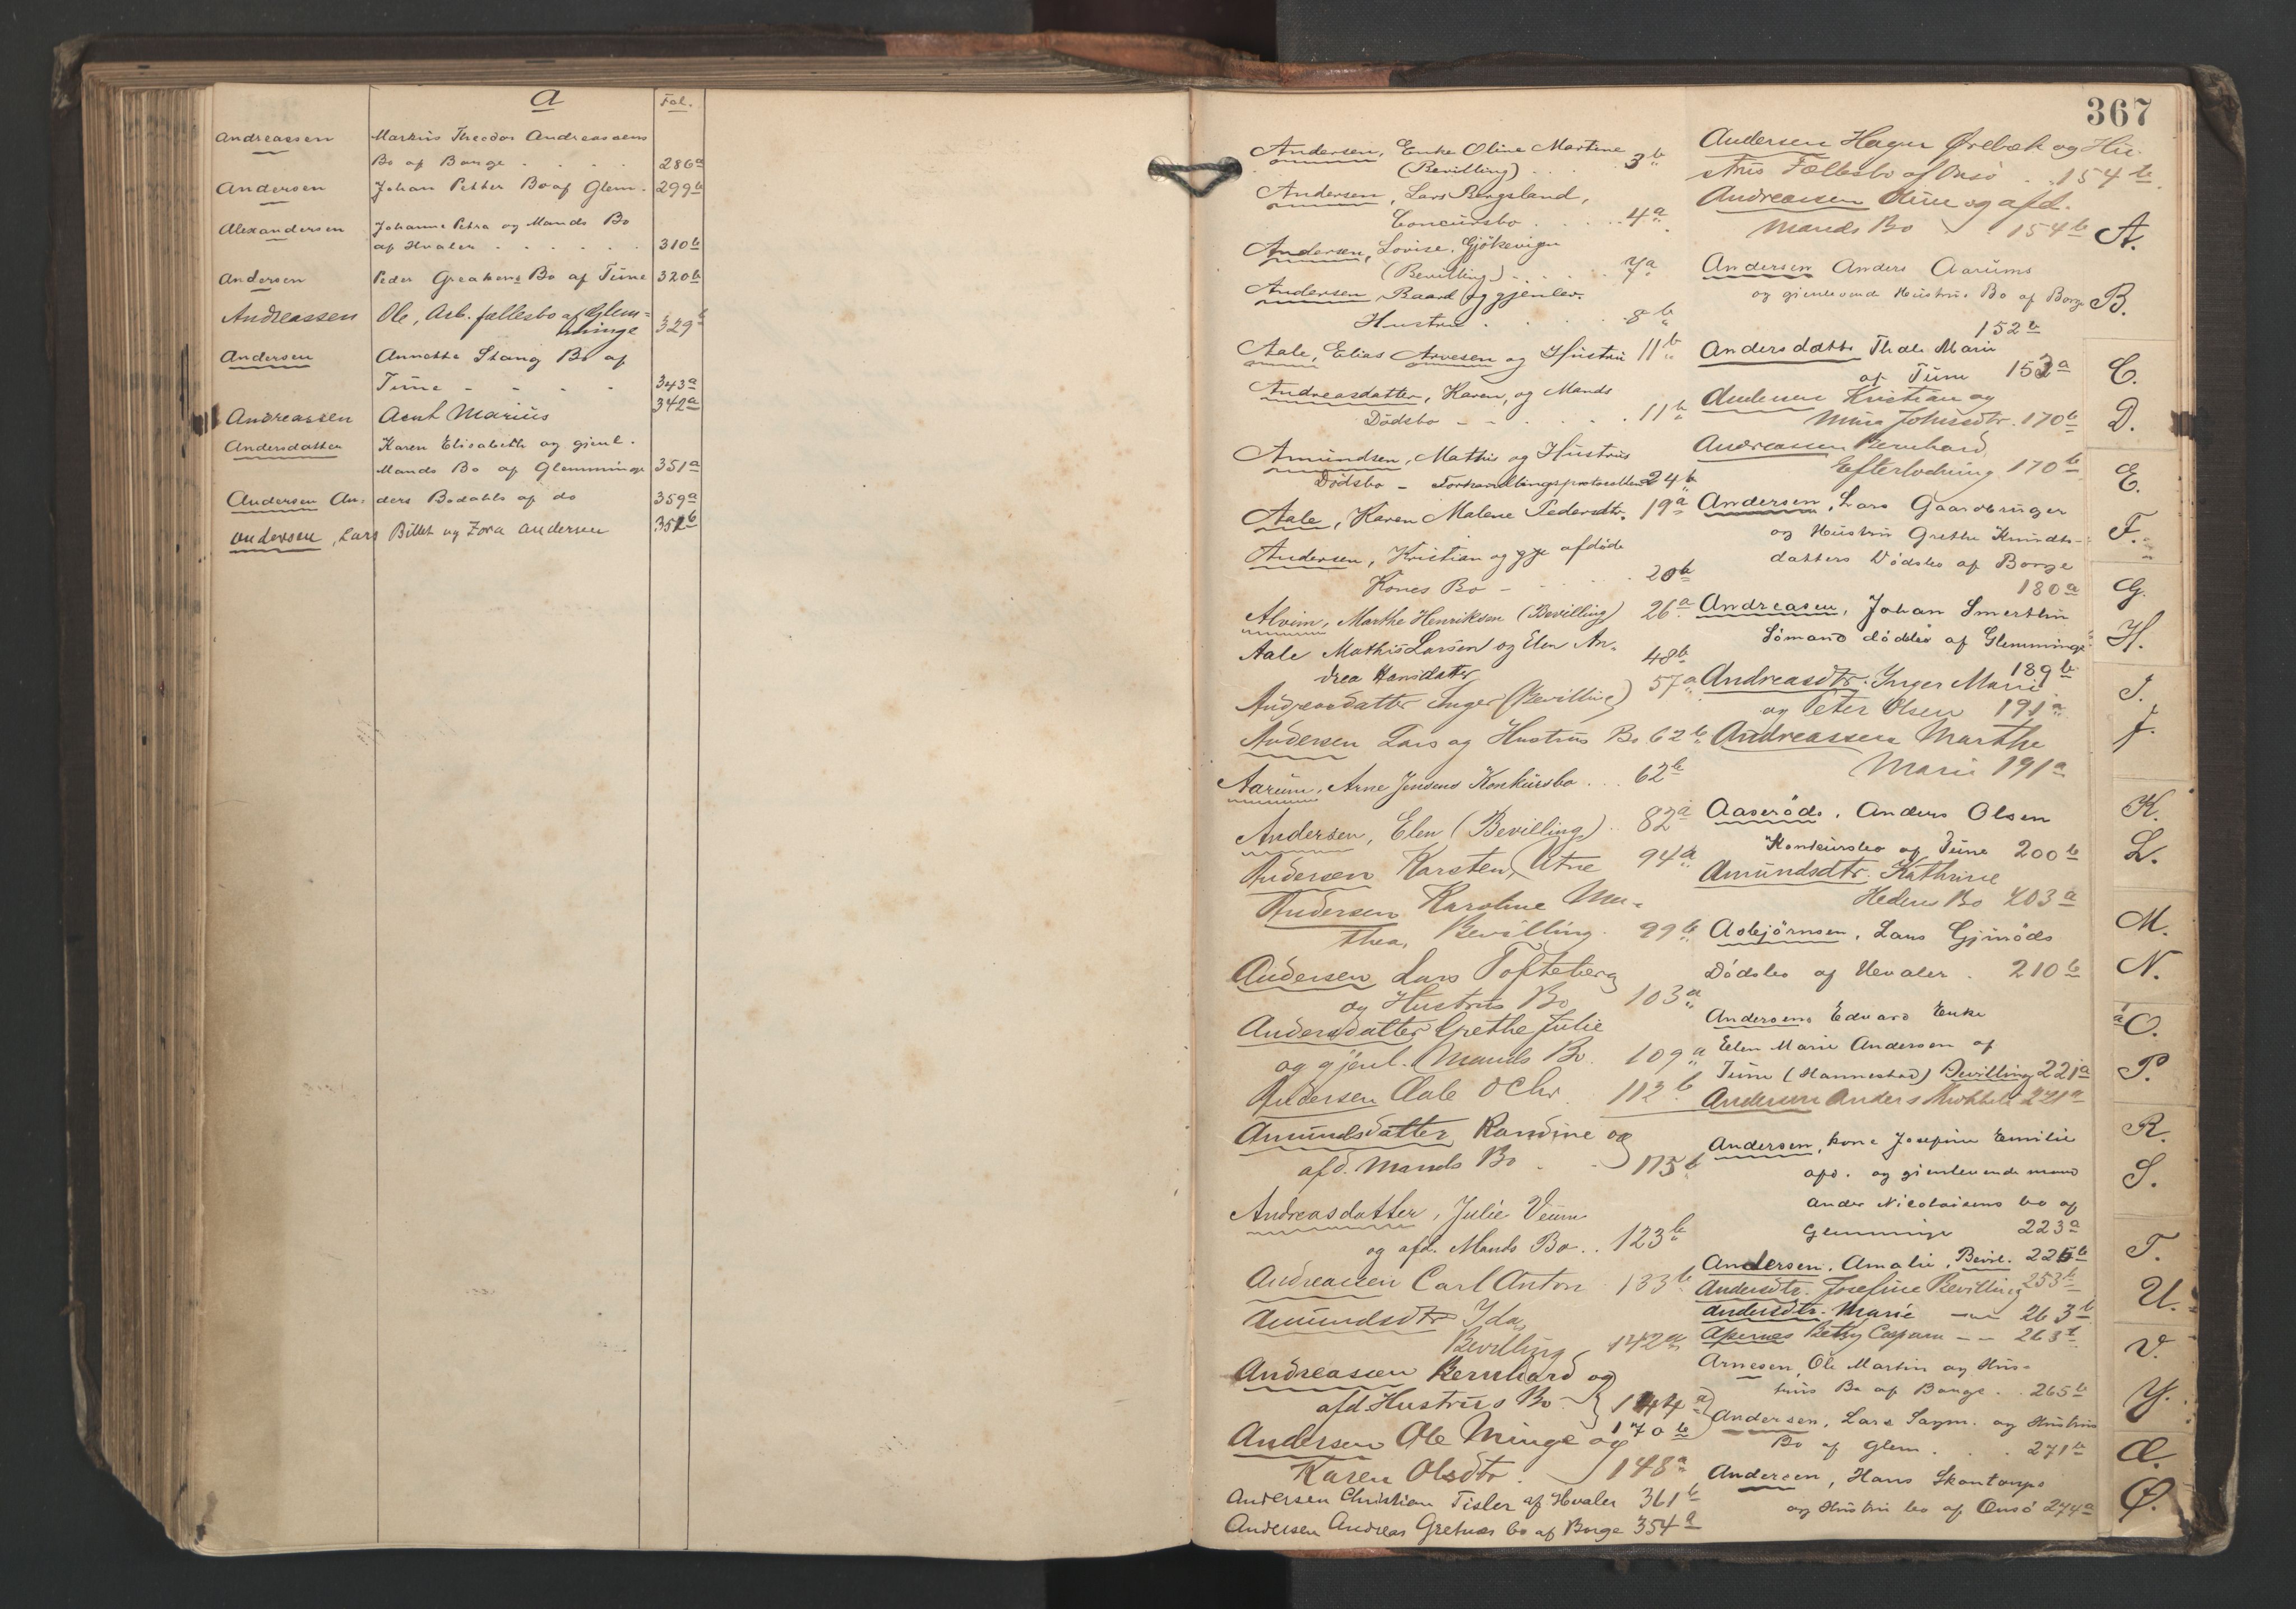 a
Fol.
Andreassen Markus Theodor Andreassens
Bo af Borge . . . . 286a
Andersen Johan Petter Bo af Glem. 299b
Alexandersen Johanne Petra og Mands Bo
af Hvaler . . . . . . 310b
Andersen Peder Greakers Bo af Tune 320b
Andreassen Ole, Arb. fællesbo af Glem=
minge 329b
Andersen Annette Stang Bo af
Tune - - - - 343a
Andreassen Arnt Marius 342a
Andersdatter Karen Elisabeth og gjenl.
Mands Bo af Glemminge 351a
Andersen Anders Bodahls af do 359a
Andersen, Lars Billet og Zora Andersen 351b
367
Andersen, Enke Oline Martine
(Bevilling) . . . 3b
Andersen, Lars Bergsland,
Concursbo . . . . 4a
Andersen, Lovise, Gjökevigen
(Bevilling) . . . . 7a
Andersen Baard og gjenlev.
Hustru . . . . . 8b
Aale, Elias Arvesen og Hustru 11b
Andreasdatter, Karen, og Mands
Dödsbo - - . . . . 11b
Amundsen, Mathis og Hustrus
Dödsbo - Forhandlingsprotocollen 24b
Aale, Karen Malene Pedersdtr. 19a
Andersen, Kristian og afdöde
Kones Bo - . . . . 20b
Alvim, Marthe Henriksen (Bevilling) 26a
Aale Mathis Larsen og Elen An-
drea Hansdatter 48b
Andreasdatter Inger (Bevilling) 57a
Andersen Lars og Hustrus Bo 62b
Aarum, Arne Jensens Konkursbo . . . 62b
Andersen, Elen (Bevilling) . . 82a
Andersen Karsten Utne 94a
Andersen Karoline Ma-
thea, Bevilling. 99b
Andersen Lars Tofteberg
og Hustrus Bo 103a
Andersdatter Grethe Julie
og gjenl. Mands Bo. 109a
Andersen Aale O Chr. 112b
Amundsdatter Randine og
afd. Mands Bo . . 115b
Andreasdatter, Julie Veum
og afd. Mands Bo . . 123b
Andreassen Carl Anton 133b
Amundsdtr Ida,
Bevilling 142a
Andreassen Bernhard og
afd. Hustrus Bo 144a
170b
Andersen Ole Minge og
Karen Olsdtr . 148a
Andersen Christian Tisler af Hvaler 361b
Andersen Andreas Gretnes bo af Borge 354a
Andersen Hagen Örebæk og Hu-
strus Fællesbo af Onsö . . 154b
Andreassen Oline og afd.
Mands Bo . 154b
Andersen Anders Aarums
og gjenlevende Hustrus Bo af Borge
152b
Andersdatter Thale Marie
af Tune 153a
Andersen Kristian og
Mina Johnsdtr. 170b
Andreassen Bernhard
Efterlodning 170b
Andersen, Lars Gaardbruger
og Hustru Grethe Knuds-
datters Dödsbo af Borge
180a
Andreasen, Johan Smerthin
Sömand dödsbo af Glemminge
189b
Andreasdtr. Inger Marie
og Peter Olsen 191a
Andreassen Marthe
Marie 191a
Aaseröds, Anders Olsen
Konkursbo af Tune 200b
Amundsdtr. Kathrine
Hedens Bo 203a
Asbjörnsen, Lars Gjeröds
Dödsbo af Hvaler . 210b
Andersens Edvard Enke
Elen Marie Andersen af
Tune (Hannestad) Bevilling 221a
Andersen Anders 221a
Andersen, kone Josefine Emilie
afd. og gjenlevende mand
Ander Nicolaisens bo af
Glemminge 223a
Andersen, Amalie, Bevil. 226b
Andersdtr. Josefine Bevilling 253b
Andersdtr. Marie -"- 263b
Apenes Betsy Caspara - - 263b
Arnesen, Ole Martin og Hus-
trus Bo af Borge . . 265b
Andersen, Lars Sagm. og Hustrus
Bo af Glem. . . . 271b
Andersen, Hans Skantorps
og Hustru bo af Onsö 274a
A.
B.
C.
D.
E.
F.
G.
H.
I.
J.
K.
L.
M.
N.
O.
P.
R.
S.
T.
U.
V.
Y.
Æ.
Ø.